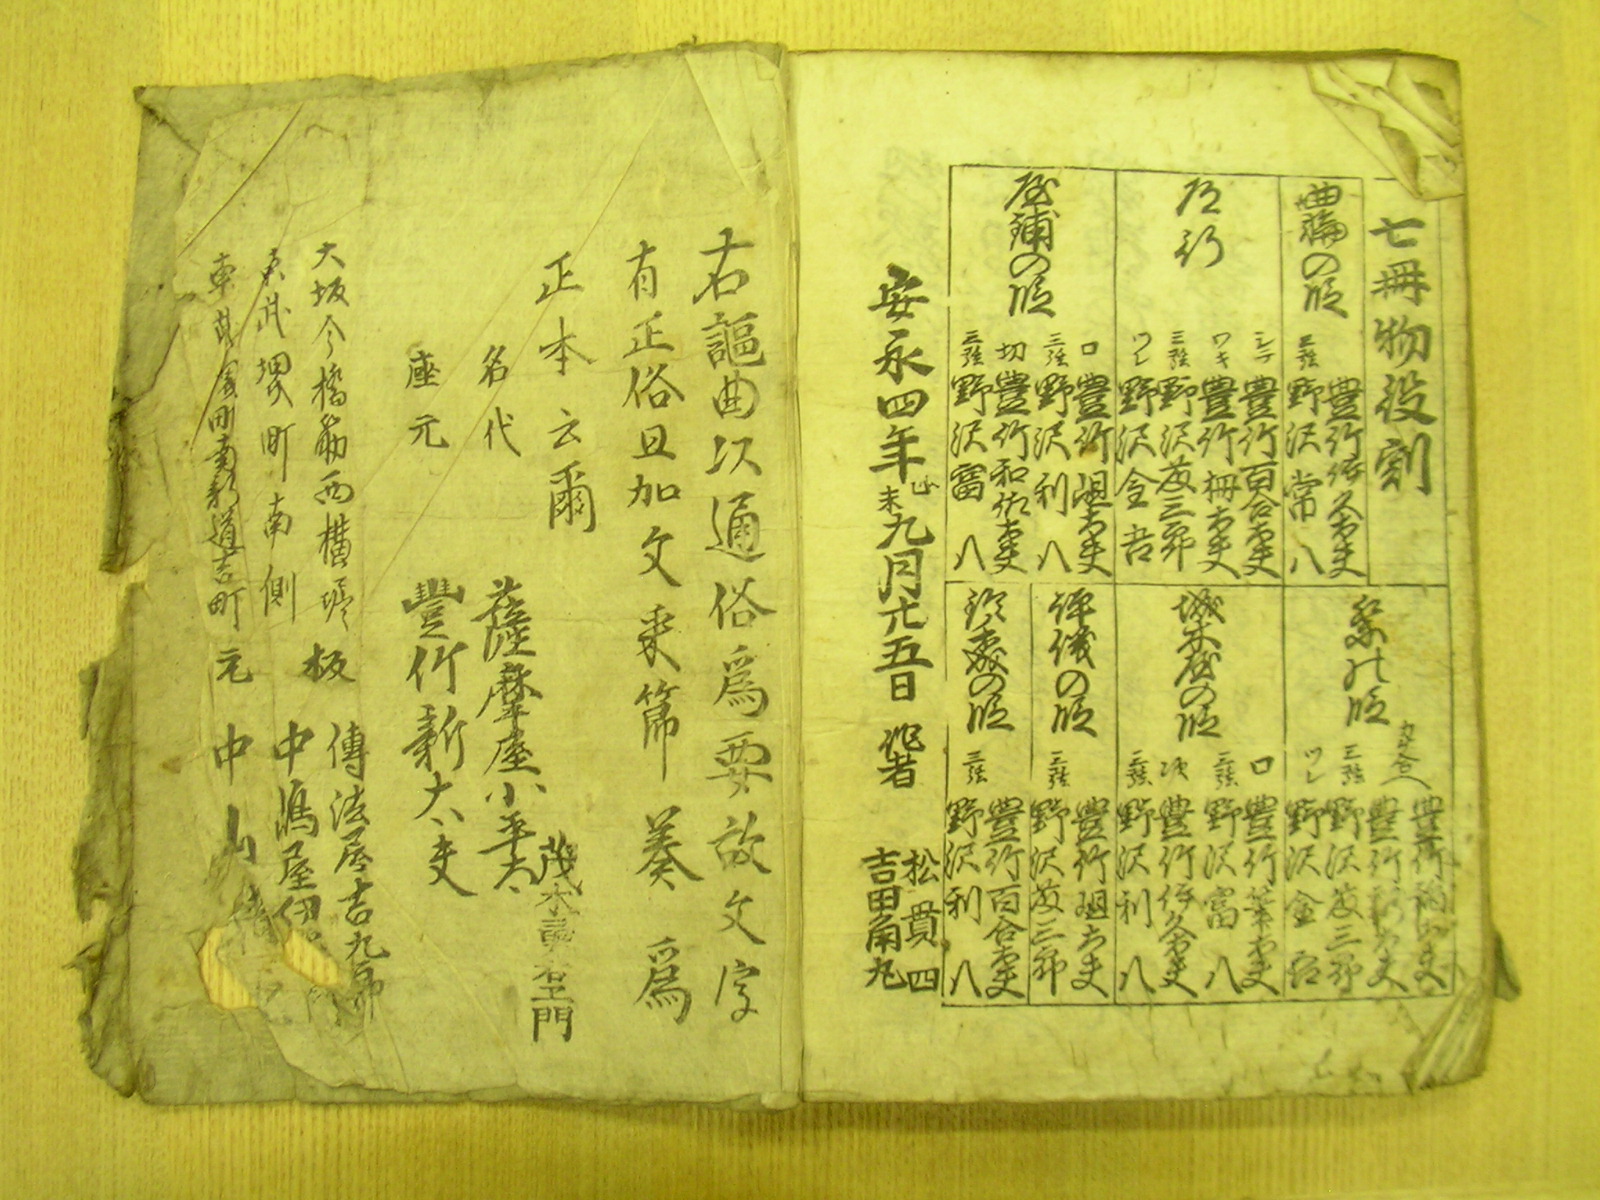 七冊物役割
曲輪の段
豊竹伊久太夫
三弦 野沢常八
道行
シテ 豊竹百合太夫
ワキ 豊竹冊太夫
三弦 野沢友三郎
ツレ 野沢金吾
屋鋪の段
口 豊竹岨太夫
三弦 野沢利八
切 豊竹和佐太夫
三弦 野沢富八
の段
カケ合
豊竹
豊竹新太夫
三弦 野沢友三郎
ツレ 野沢金吾
城木屋の段
口 豊竹筆太夫
三弦 野沢富八
次 豊竹伊久太夫
三弦 野沢利八
評儀の段
豊竹岨太夫
三弦 野沢友三郎
鈴森の段
豊竹百合太夫
三弦 野沢利八
安永四年乙未九月廿五日
作者
松貫四
吉田角丸
右謳曲以通俗為要故文字
有正俗且加文采節奏為
正本云爾
茂木
名代 薩摩座小平太
座元 豊竹新太夫
大坂今橋筋西横堀 傳法屋吉九郎
板
東武堺町南側 中嶋屋伊
町 元 中山